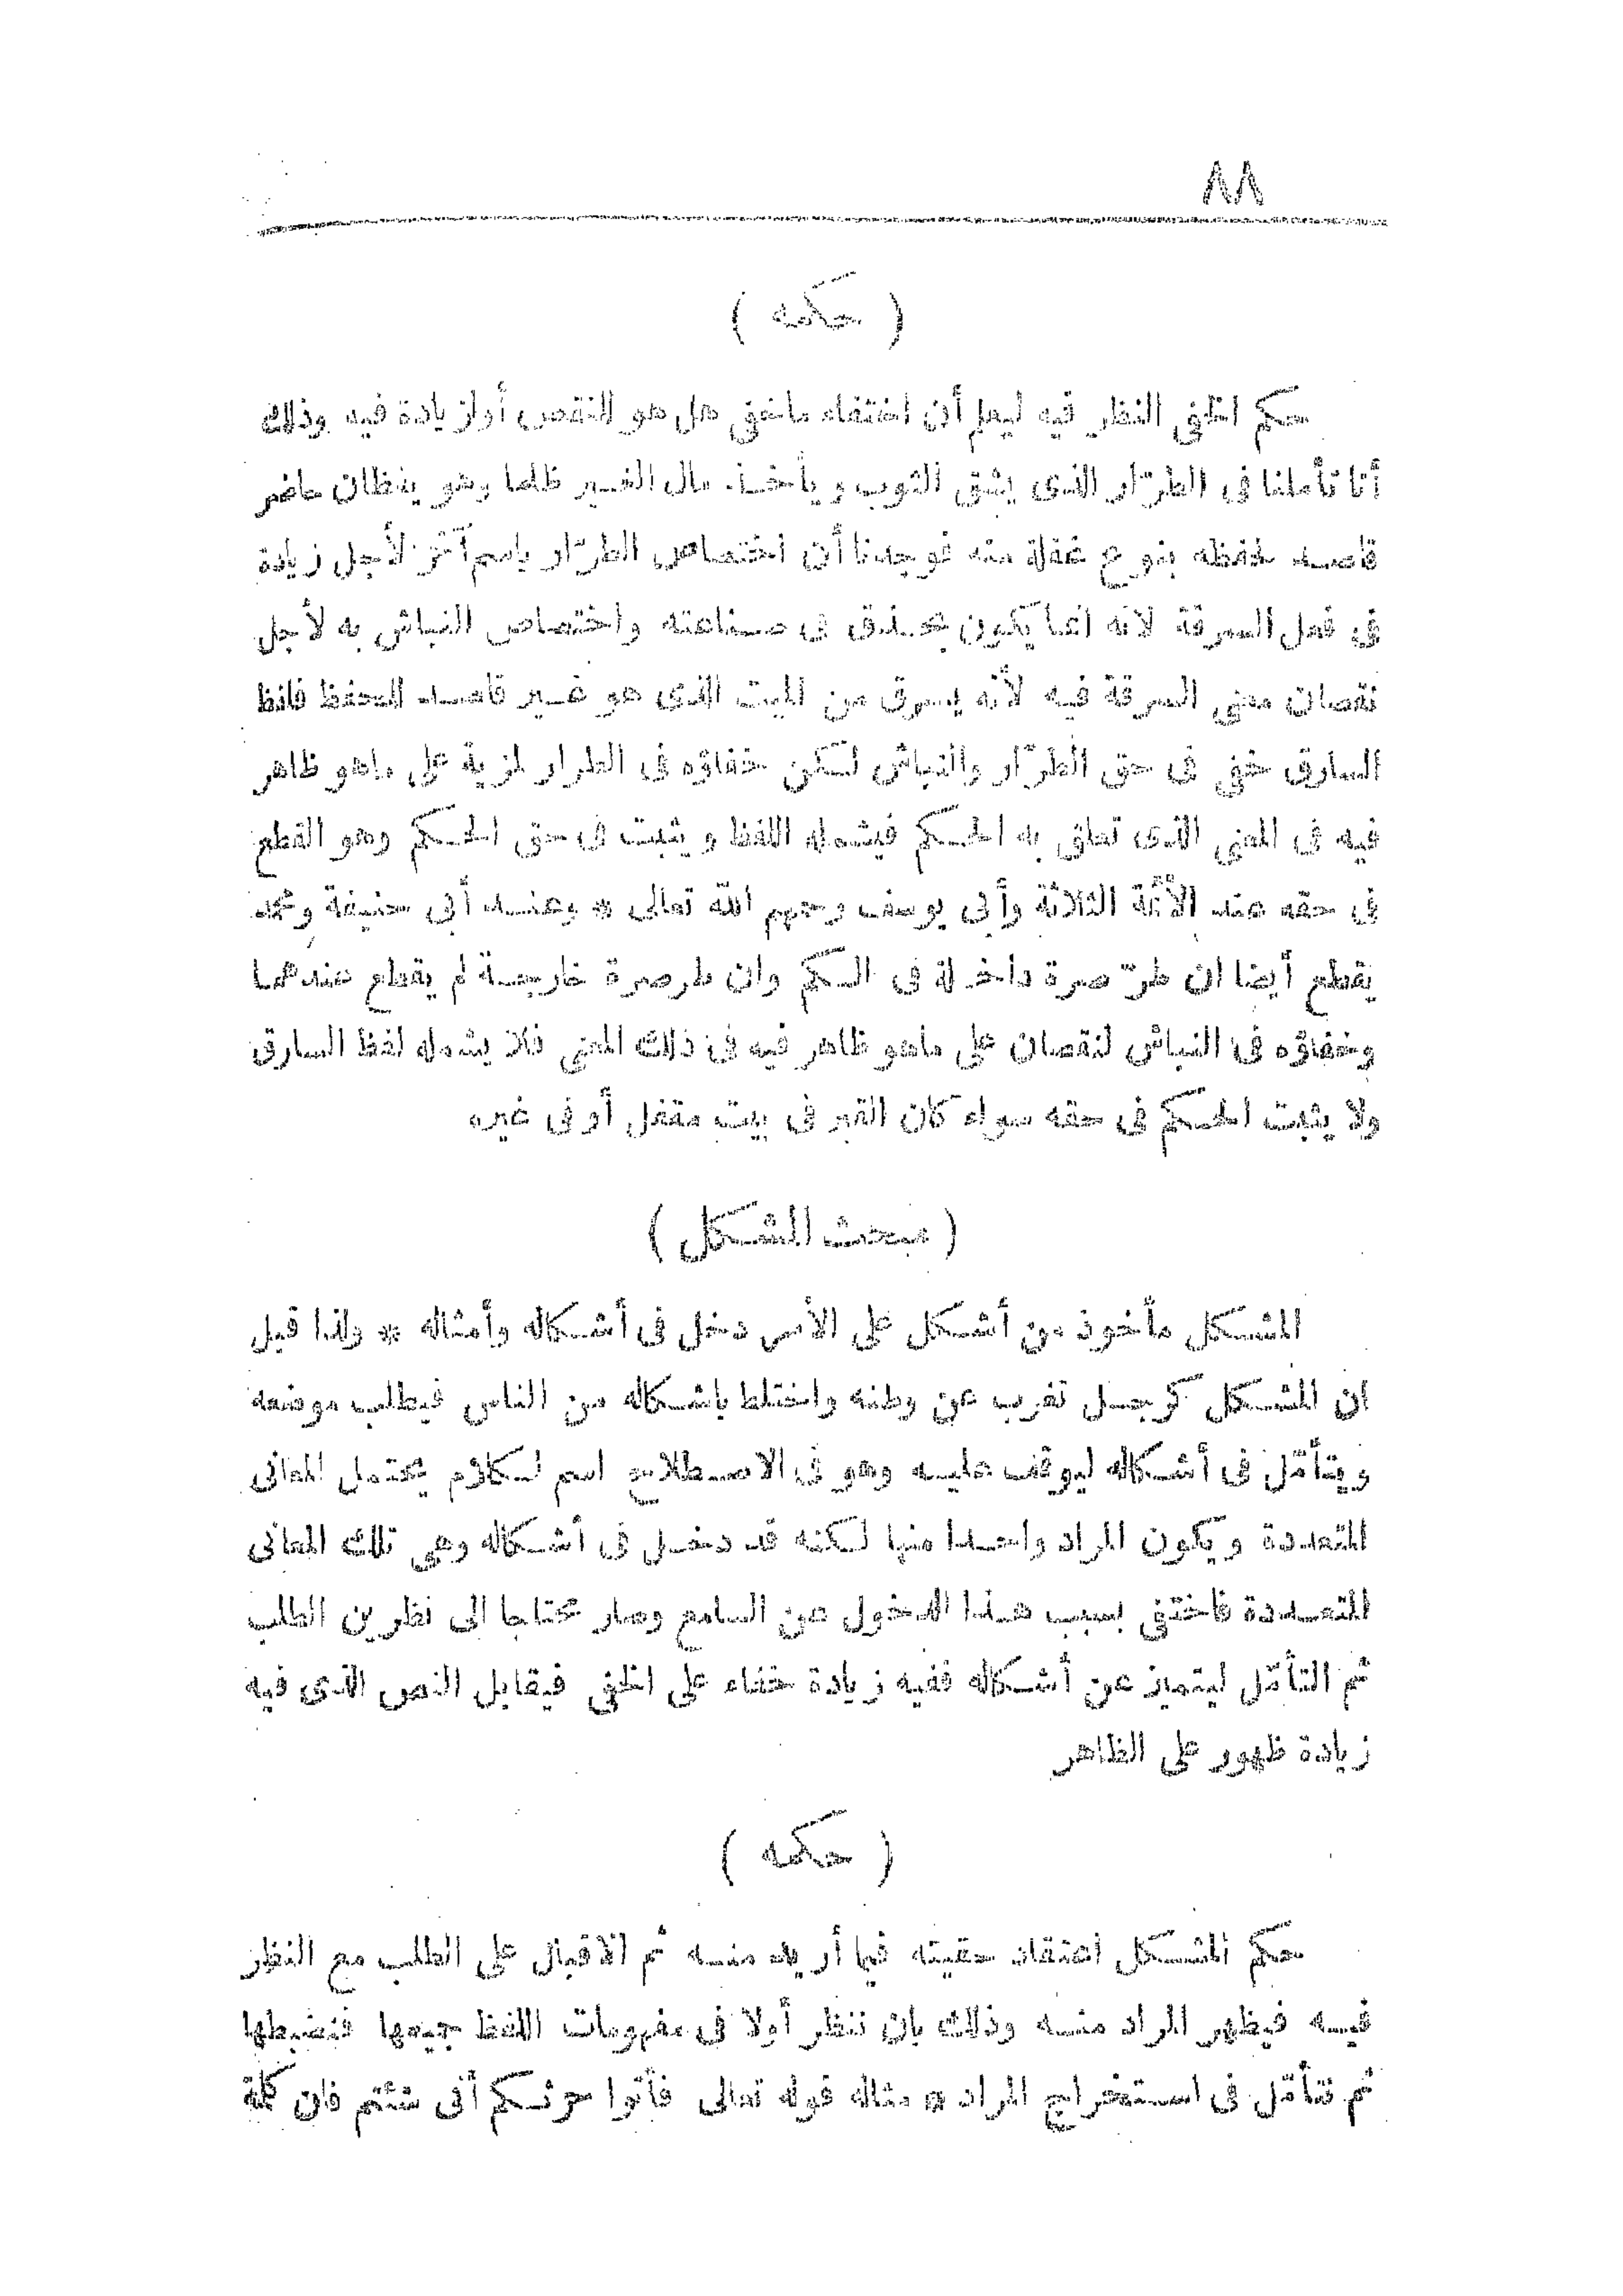 ٨٨
( حكمه )
حكم الخفى النظر فيه ليعلم أن اختفاء ماخفى هل هو للنقص أولزيادة فيه وذلك
أنا تأملنا فى الطرّار الذى يشق الثوب ويأخذ مال الغير ظلما وهو يقظان حاضر
قاصد لحفظه بنوع غفلة منه فوجدنا أن اختصاص الطرّار باسم آخر لأجل زيادة
فى فعل السرقة لانه انما يكون بحذق فى صناعته واختصاص النباش به لأجل
نقصان معنى السرقة فيه لأنه يسرق من الميت الذى هو غير قاصد للحفظ فلفظ
السارق خفى فى حق الطرّار والنباش لكن خفاؤه فى الطرار لمزية على ماهو ظاهر
فيه فى المعنى الذى تعلق به الحكم فيشمله اللفظ ويثبت فى حق الحكم وهو القطع
فى حقه عند الأئمة الثلاثة وأبى يوسف رحمهم الله تعالى * وعند أبى حنيفة ومحمد
يقطع أيضا ان طرّ صرة داخلة فى الكم وان طر صرة خارجة لم يقطع عندهما
وخفاؤه فى النباش لنقصان على ماهو ظاهر فيه فى ذلك المعنى فلا يشمله لفظ السارق
ولا يثبت الحكم فى حقه سواء كان القبر فى بيت مقفل أو فى غيره
( مبحث المشكل )
المشكل مأخوذ من أشكل على الأمر دخل فى أشكاله وأمثاله * ولذا قيل
ان المشكل كرجل تغرب عن وطنه واختلط باشكاله من الناس فيطلب موضعه
ويتأمّل فى أشكاله ليوقف عليه وهو فى الاصطلاح اسم لكلام يحتمل المعانى
المتعددة ويكون المراد واحدا منها لكنه قد دخل فى أشكاله وهى تلك المعانى
المتعددة فاختفى بسبب هذا الدخول عن السامع وصار محتاجا الى نظرين الطلب
ثم التأمّل ليتميز عن أشكاله ففيه زيادة خفاء على الخفى فيقابل النص الذى فيه
زيادة ظهور على الظاهر
( حكمه )
حكم المشكل اعتقاد حقيته فيما أريد منه ثم الاقبال على الطلب مع النظر
فيه فيظهر المراد منه وذلك بان ننظر أولا فى مفهومات اللفظ جميعها فنضبطها
ثم نتأمّل فى استخراج المراد * مثاله قوله تعالى فأتوا حرثكم أنى شئتم فان كلمة